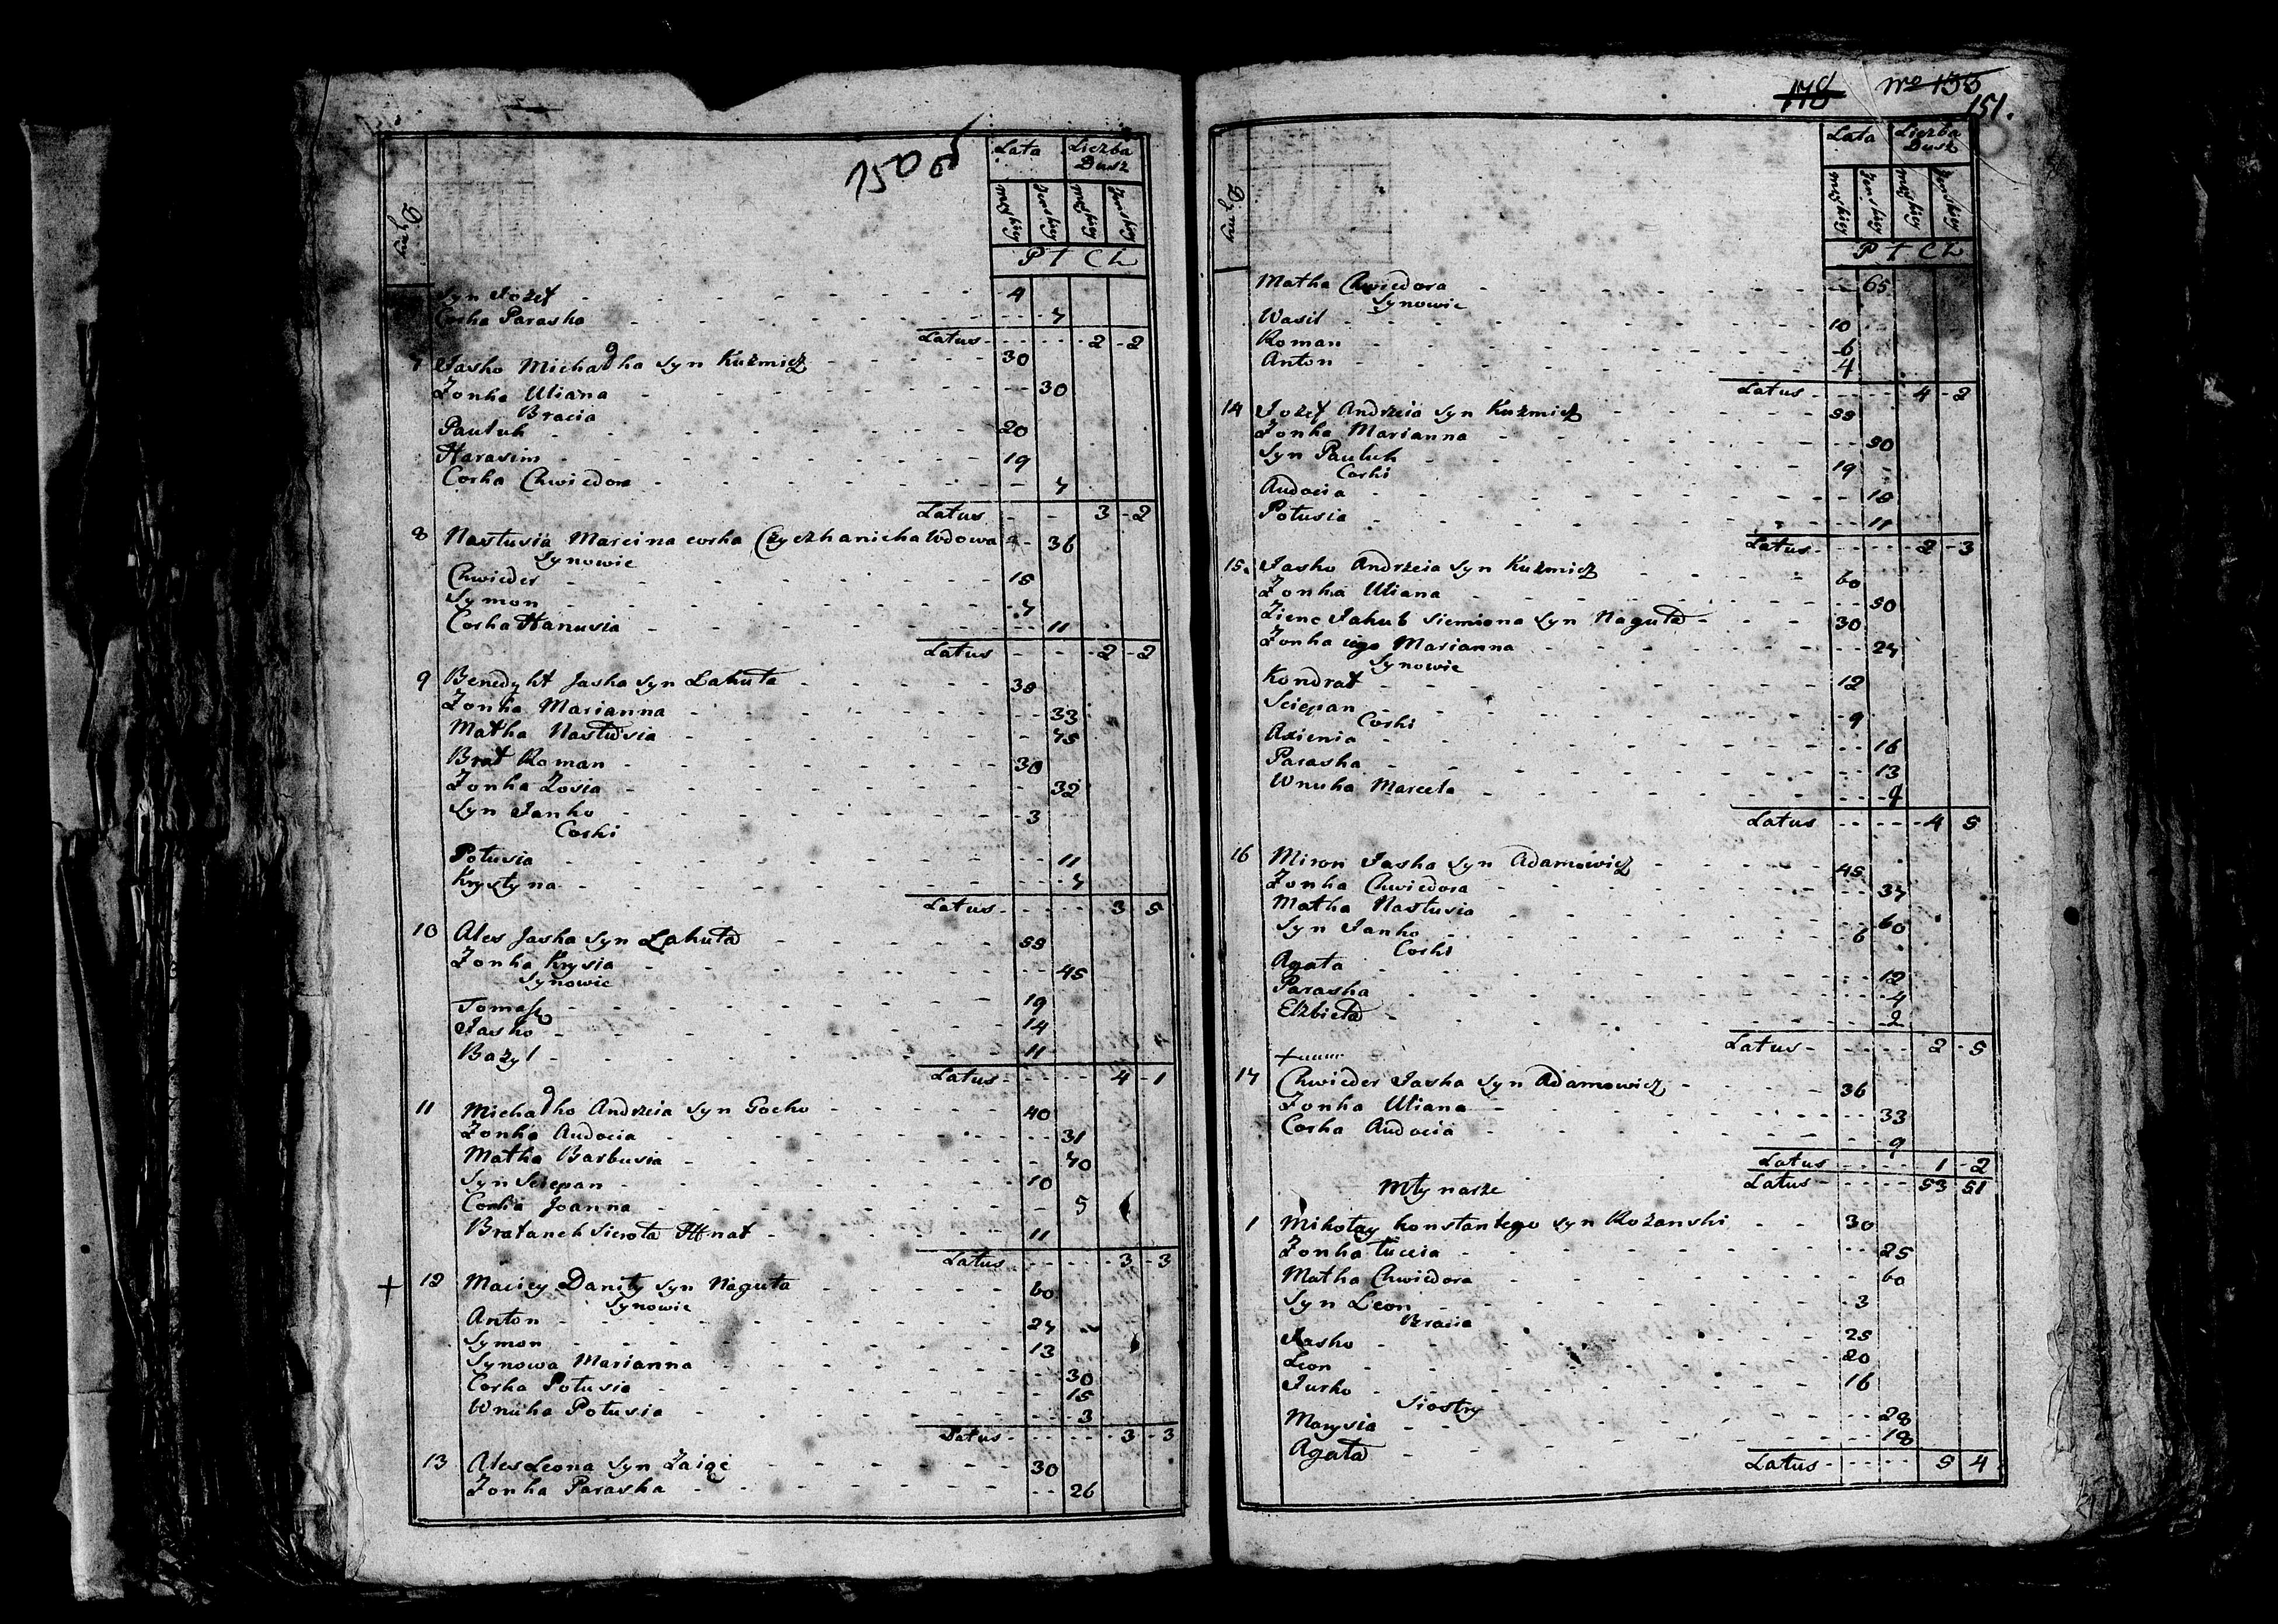 150 об
Dymy
Lata
Liczba Dusz
męskiey
żenskiey
męskiey
żenskiey
P t C L
Syn Jozef - 4
Corka Paraska - 7
Latus - 2 - 2
7 Jasko Michałka syn Kuzmicz - 30
Zonka Uliana - 30
Bracia
Pauluk - 20
Harasim - 19
Corka Chwiedora - 7
Latus - 3 - 2
8 Nastusia Marcina corka Czyczkanicha Wdowa - 36
Synowie
Chwieder - 18
Symon - 7
Corka Hanusia - 11
Latus - 2 - 2
9 Benedykt Jaska syn Łakuta - 38
Zonka Marianna - 33
Matka Nastusia - 75
Brat Roman - 30
Zonka Zosia - 32
Syn Janko - 3
Corki
Połusia - 11
Krystyna - 7
Latus - 3 5
10 Ales Jaska syn Łakuta - 55
Zonka Krysia - 45
Synowie
Tomasz - 19
Jasko - 14
Bazyl - 11
Latus - 4 - 1
11 Michałko Andrzeia syn Gocko - 40
Zonka Audocia - 31
Matka Barbusia - 70
Syn Sciepan - 10
Corka Joanna - 5
Bratanek Sierota Ihnat - 11
Latus - 3 - 3
+ 12 Maciey Daniły syn Naguła - 60
Synowie
Anton - 27
Symon - 13
Synowa Marianna - 30
Corka Połusia - 15
Wnuka Połusia - 3
Latus - 3 - 3
13 Ales Leona syn Zaigc - 30
Zonka Paraska - 26
178 No 153
151.
Dymy
Lata
Liczba Dusz
męskiey
żenskiey
męskiey
żenskiey
P t C L
Matka Chwiedora - 65
Synowie
Wasil - 10
Roman - 6
Anton - 4
Latus - 4 - 2
14 Jozef Andrzeia syn Kuzmicz - 55
Zonka Marianna - 50
Syn Pauluk - 19
Corki
Audocia - 18
Połusia - 11
Latus - 2 - 3
15. Jasko Andrzeia syn Kuzmicz - 60
Zonka Uliana - 50
Zienc Jakub Siemiona syn Naguła - 30
Zonka iego Marianna - 27
Synowie
Kondrat - 12
Sciepan - 9
Corki
Axienia - 16
Paraska - 13
Wnuka Marcela - 4
Latus - 4 5
16 Miron Jaska syn Adamowicz - 45
Zonka Chwiedora - 37
Matka Nastusia - 60
Syn Janko - 6
Corki
Agata - 12
Paraska - 4
Elzbieta - 2
Latus - 2 - 5
17 Chwieder Jaska syn Adamowicz - 36
Zonka Uliana - 33
Corka Audocia - 9
Latus - 1 - 2
Latus - 53 51
Młynarze
1 Mikołay Konstantego syn Rozanski - 30
Zonka Łucia - 25
Matka Chwiedora - 60
Syn Leon - 3
Bracia
Jasko - 25
Leon - 20
Jurko - 16
Siostry
Marysia - 28
Agata - 18
Latus - 5 4